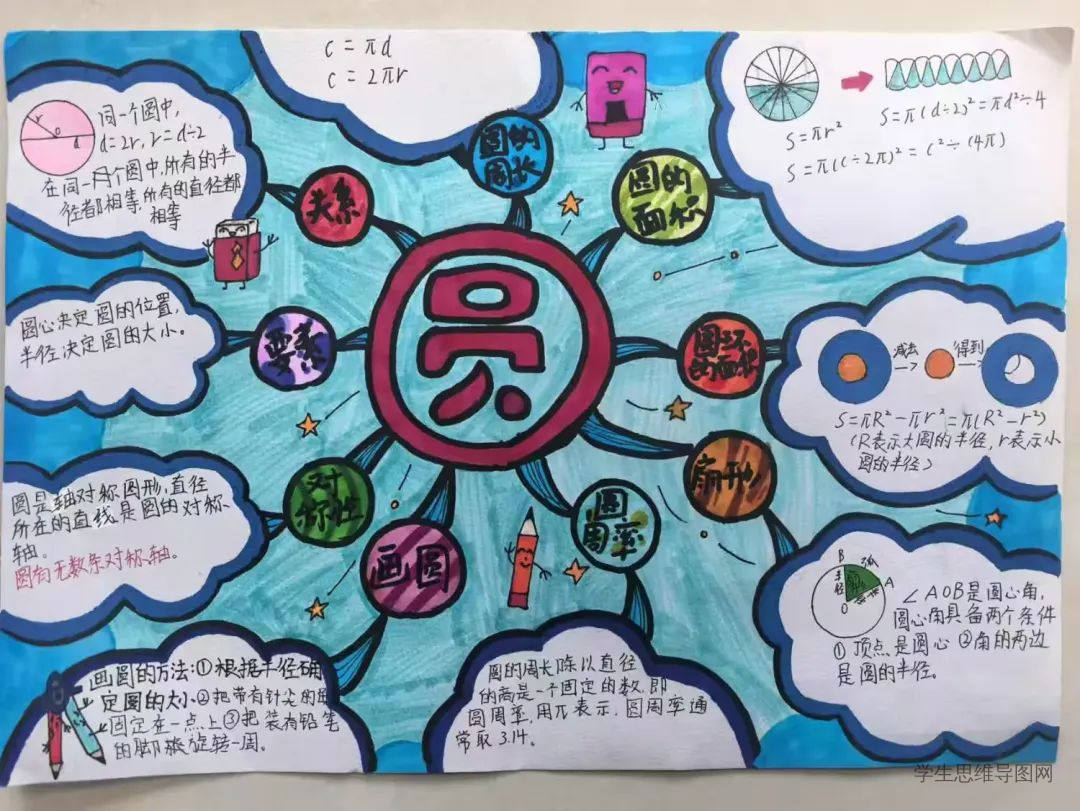 C = πd
C = 2πr
S = πr²
S = π(d÷2)² = πd²÷4
S = π(C÷2π)² = C²÷(4π)
r
o
d
同一个圆中,
d=2r, r=d÷2
在同一个圆中,所有的半
径都相等,所有的直径都
相等
关系
圆的
周长
圆的
面积
圆
圆心决定圆的位置,
半径决定圆的大小。
要素
圆环
的面积
减去
得到
S=πR²-πr²=π(R²-r²)
(R表示大圆的半径, r表示小
圆的半径)
圆是轴对称图形,直径
所在的直线是圆的对称
轴。
圆有无数条对称轴。
对
称性
画圆
圆
周率
扇形
B
弧
A
半径
O
∠AOB是圆心角,
圆心角具备两个条件
①顶点是圆心 ②角的两边
是圆的半径。
画圆的方法:①根据半径确
定圆的大小②把带有针尖的
固定在一点上③把装有铅笔
的脚旋转一周。
圆的周长除以直径
的商是一个固定的数.即
圆周率,用π表示.圆周率通
常取3.14。
学生思维导图网